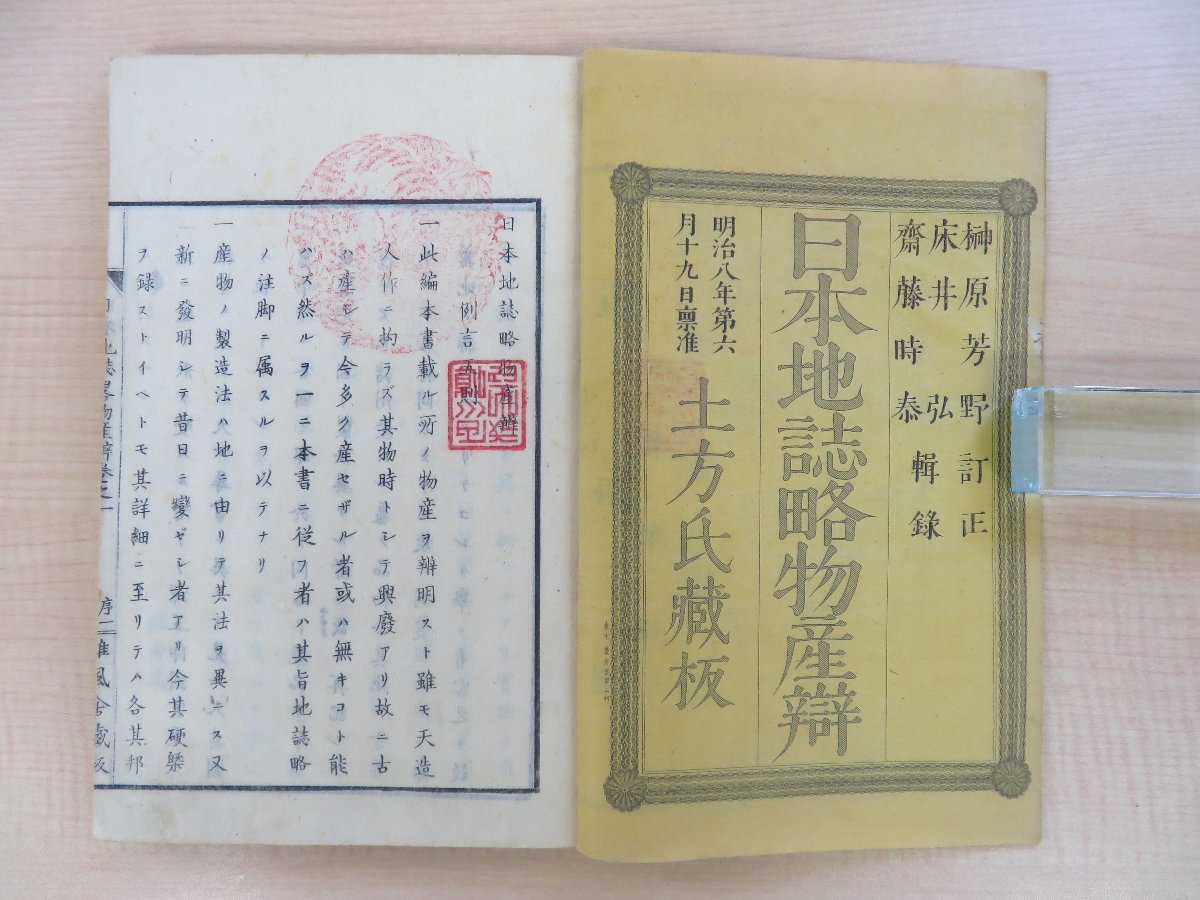 榊原芳野訂正
床井弘
齋藤時泰
輯錄
日本地誌略物産辯
明治八年第六
月十九日禀准
土方氏藏板
日本地誌略物産辨
例言五則
一此編本書載ル所ノ物産ヲ辨明スト雖モ天造
人作ニ拘ラズ其物時トシテ興廢アリ故ニ古
ハ産シテ今多ク産セザル者或ハ無キコト能
ハズ然ルヲ一ニ本書ニ從フ者ハ其旨地誌略
ノ注脚ニ属スルヲ以テナリ
一産物ノ製造法ハ地ニ由リテ其法ヲ異ニス又
新ニ發明シテ昔日ニ變ゼシ者アリ今其梗槩
ヲ録ストイヘトモ其詳細ニ至リテハ各其邦
日本地誌畧物産辨巻之一
序二
雄風舎蔵版